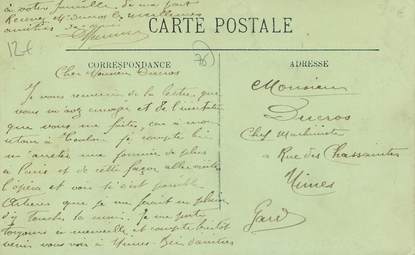 à votre famille de ma part
Remey M. Ducros les meilleures
amitiés
CARTE POSTALE
12€
CORRESPONDANCE
ADRESSE
Cher Monsieur Ducros
Je vous remercie de la lettre que
vous m'avez envoyée et de l'invitation
que vous me faites, car à mon
retour à Toulon je compte bien
m'arrêter une journée de plus
à Paris et de cette façon aller visiter
l'opéra et voir si c'est possible
que je me ferait un plaisir
d'y toucher la main. Je me porte
toujours à merveille et compte bientôt
venir vous voir à Nimes.
Monsieur
Ducros
Chef Machiniste
à Rue des Chassaintes
Nimes
Gard